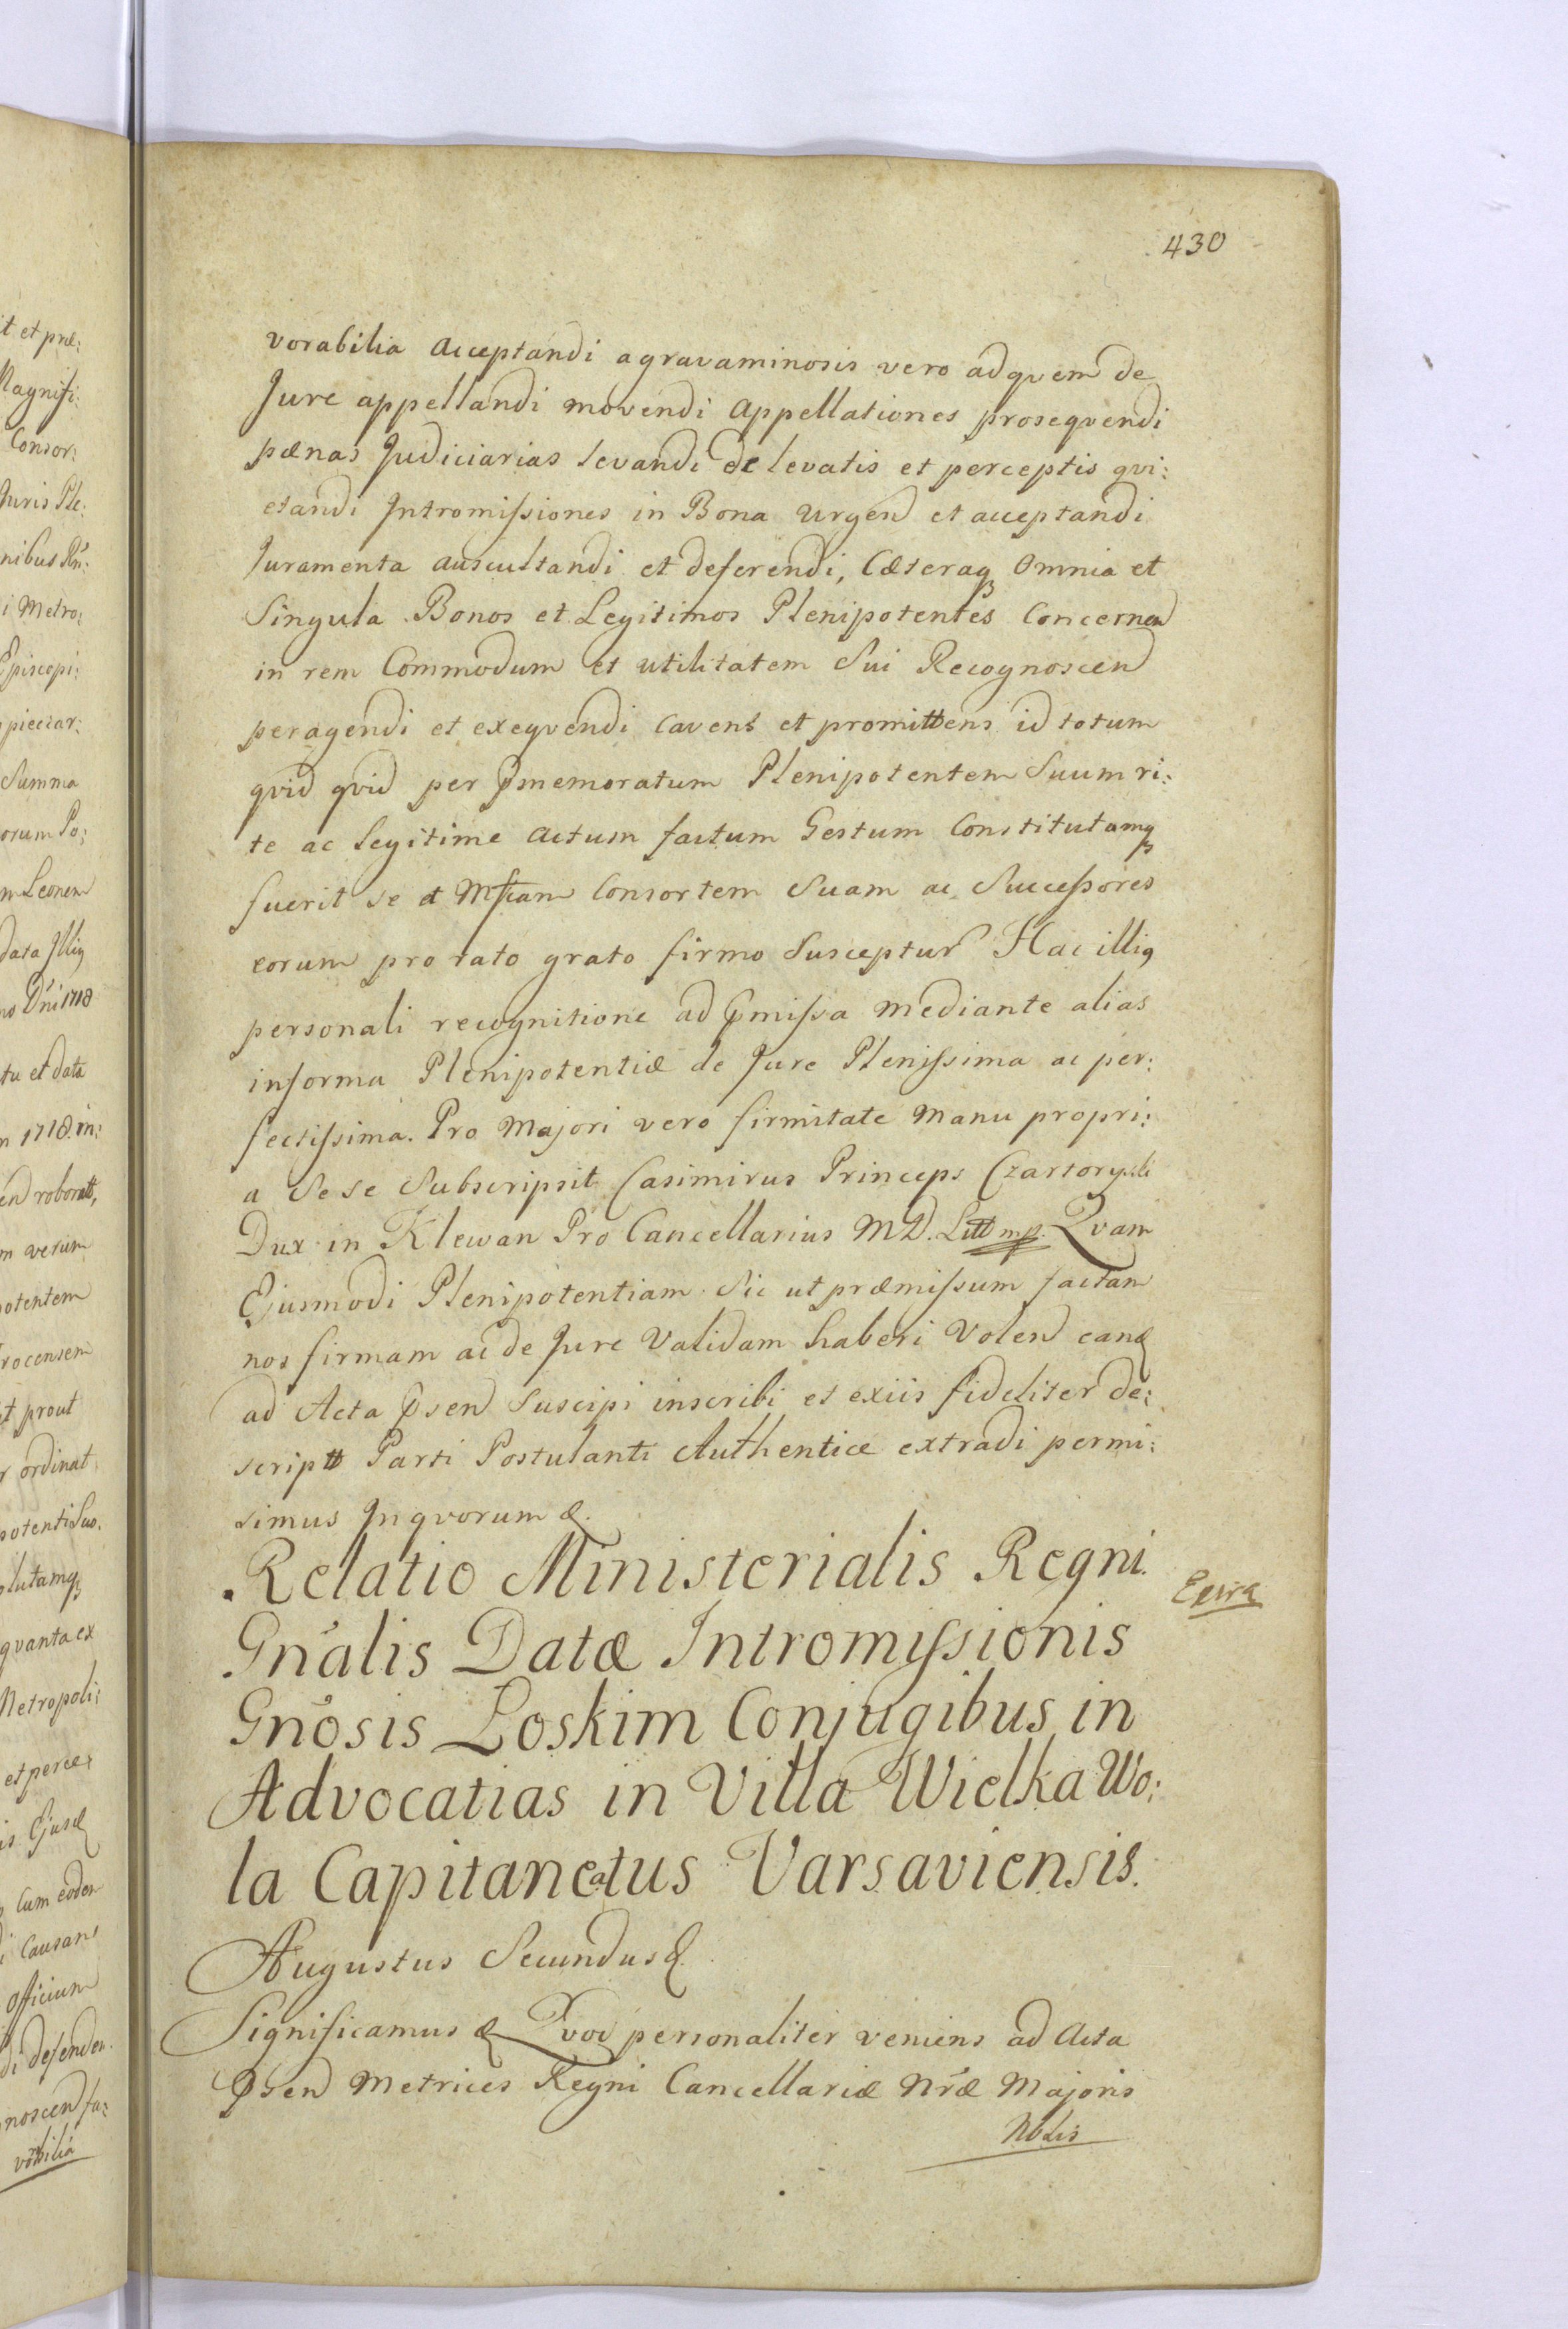 430
vorabilia acceptandi agravaminosis vero ad qvem de
Jure appellandi movendi appellationes proseqvendi
pænas Judiciarias levandi de levatis et perceptis qvi:
etandi Intromissiones in Bona urgend et acceptandi
Juramenta auscultandi et deferendi, Cæteraq Omnia et
Singula Bonos et Legitimos Plenipotentes Concernen
in rem Commodum et utilitatem Sui Recognoscen
peragendi et exeqvendi Cavens et promittens id totum
qvid qvid per pmemoratum Plenipotentem Suum ri:
te ac legitime actum factum Gestum Constitutumq
fuerit se et Mficam Consortem Suam ac Successores
eorum pro rato grato firmo Susceptur Hac illiq
personali recognitione ad pmissa mediante alias
informa Plenipotentiæ de Jure Plenissima ac per:
fectissima. Pro Majori vero firmitate Manu propri:
a Se se Subscripsit Casimirus Princeps Czartoryski
Dux in Klewan Pro Cancellarius M D. Litt mp. Qvam
Ejusmodi Plenipotentiam Sic ut præmissum factam
nos firmam ac de Jure Validam haberi Volen eand
ad Acta psen Suscipi inscribi et exiis fideliter de:
script Parti Postulanti Authentice extradi permi:
simus Inqvorum &.
Relatio Ministerialis Regni
Gnalis Datæ Intromissionis
Gnosis Loskim Conjugibus in
Advocatias in Villa Wielka Wo:
la Capitaneatus Varsaviensis.
Augustus Secundus &
Significamus & Qvod personaliter veniens ad Acta
Psen Metrices Regni Cancellariæ Nræ Majoris
Nblis
it et præ:
Magnifi:
Consor:
Juris Ple:
i Metro:
Episcopi:
Summa
orum Po:
m Leonem
data Illiq
no Dni 1718
tu et data
n 1718. in:
m verum
potentem
rocensem
et prout
r ordinat
potenti Suo.
qvanta ex
Metropoli:
et perce:
Cum eodem
i Causam
officium
noscen fa:
vorabilia